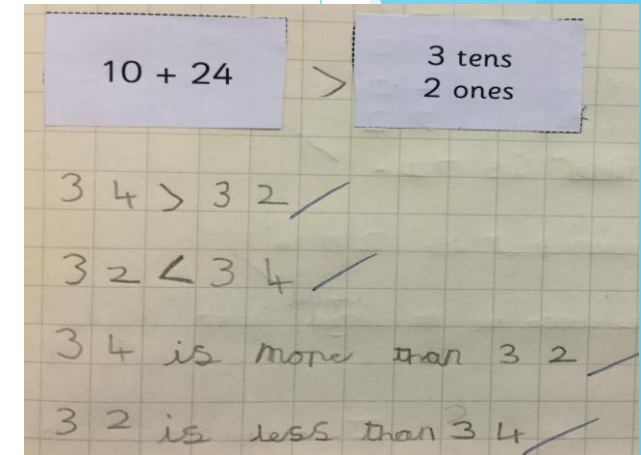 10 + 24 > 3 tens
2 ones
34 > 32
32 < 34
34 is more than 32
32 is less than 34